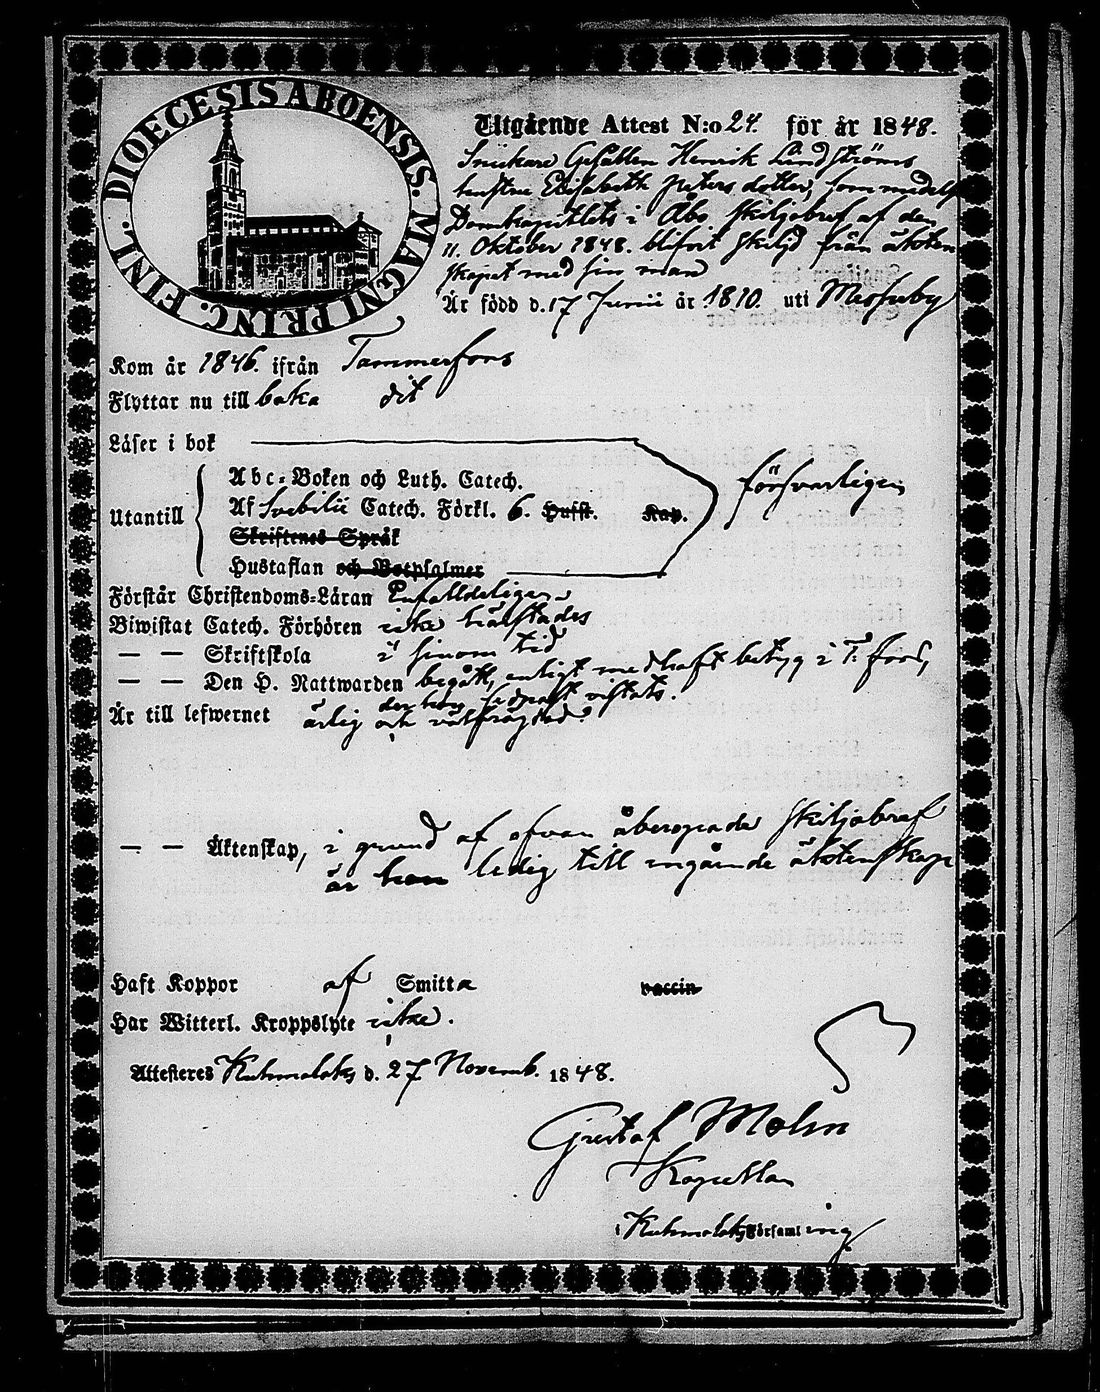 DIOECESIS ABOENSIS. MAGNI PRINC. FINL.
Utgående Attest N:o 24. för år 1848.
Snickare Gesällen Henrik Lindströms
hustru Elisabeth Petersdotter, som medelst
Domkapitlets i Åbo skiljobref af den
11. Oktober 1848. blifvit skiljd från äkten
skapet med sin man
Är född d. 17 Junii år 1810. uti Messuby
Kom år 1846. ifrån Tammerfors
Flyttar nu till baka dit
Läser i bok
Utantill
Abc-Boken och Luth. Catech.
Af Svebilii Catech. Förkl. 6. Hufst. Kap.
försvarligen
Skriftenes Språk
Hustaflan och Botpsalmer
Förstår Christendoms-Läran Enfalldeligen
Biwistat Catech. Förhören icke härstädes
— — Skriftskola i sinom tid
— — Den H. Nattwarden begått, enligt medhaft betyg i T. fors,
der hon sednast vistats.
Är till lefwernet ärlig och välfrägdad.
— — Äktenskap, i grund af ofvan åberopade skiljobref
är hon ledig till ingående äktenskap
Haft Koppor af Smitta vaccin
Har Witterl. Kroppslyte icke.
Attesteras Kuhmalaks d. 27 Novemb. 1848.
Gustaf Molin
Kapellan
i Kuhmalaks Församling